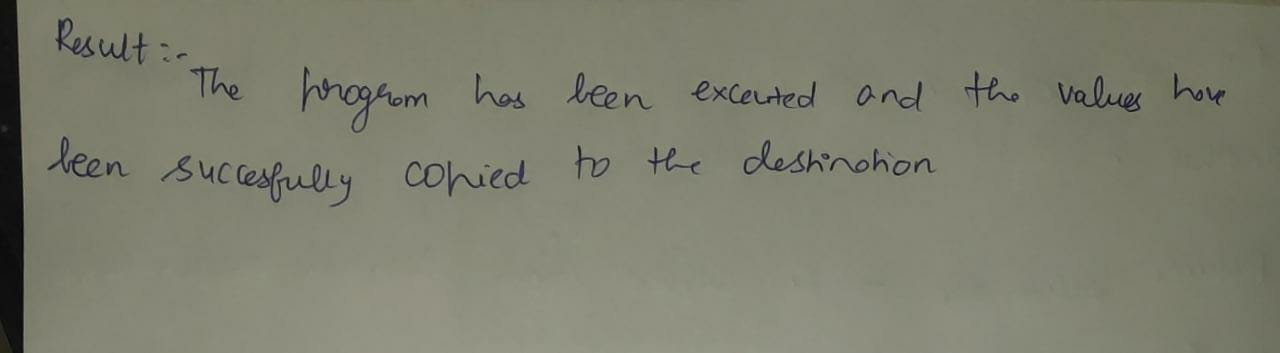 Result :-
The program has been excented and the values have
been succesfully copied to the destination